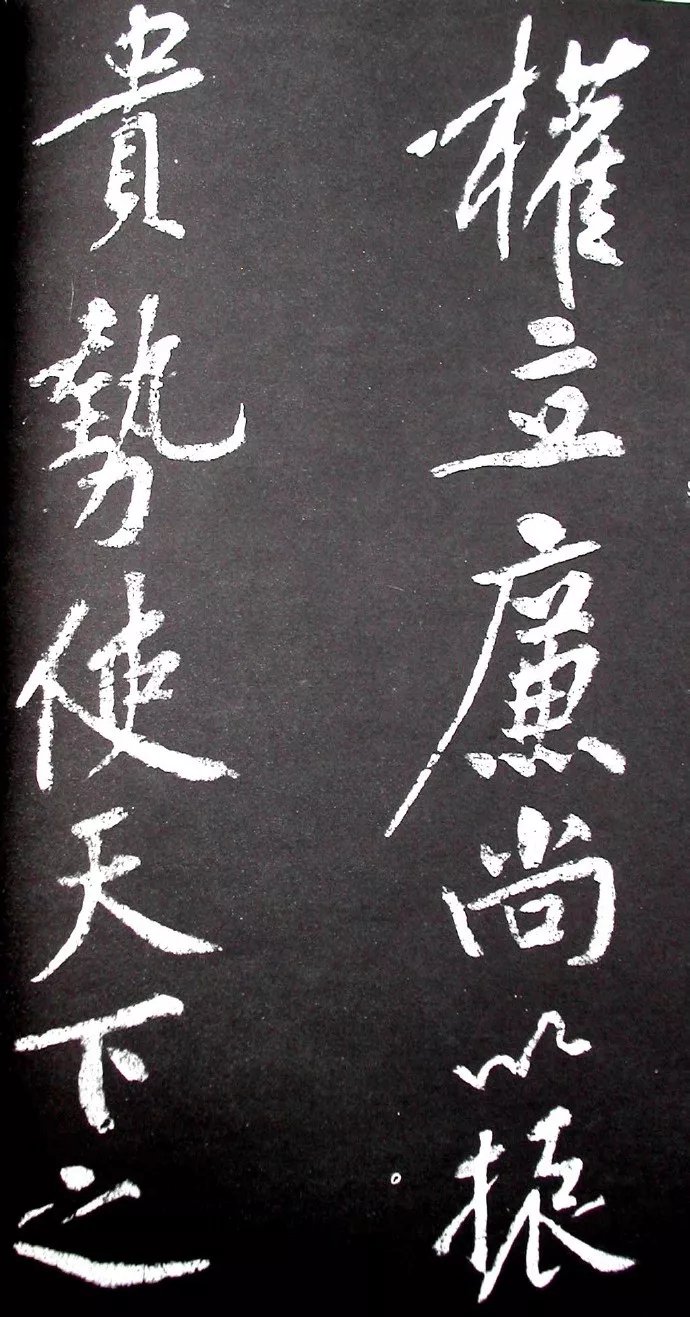 權立廉尚以振
貴勢使天下之